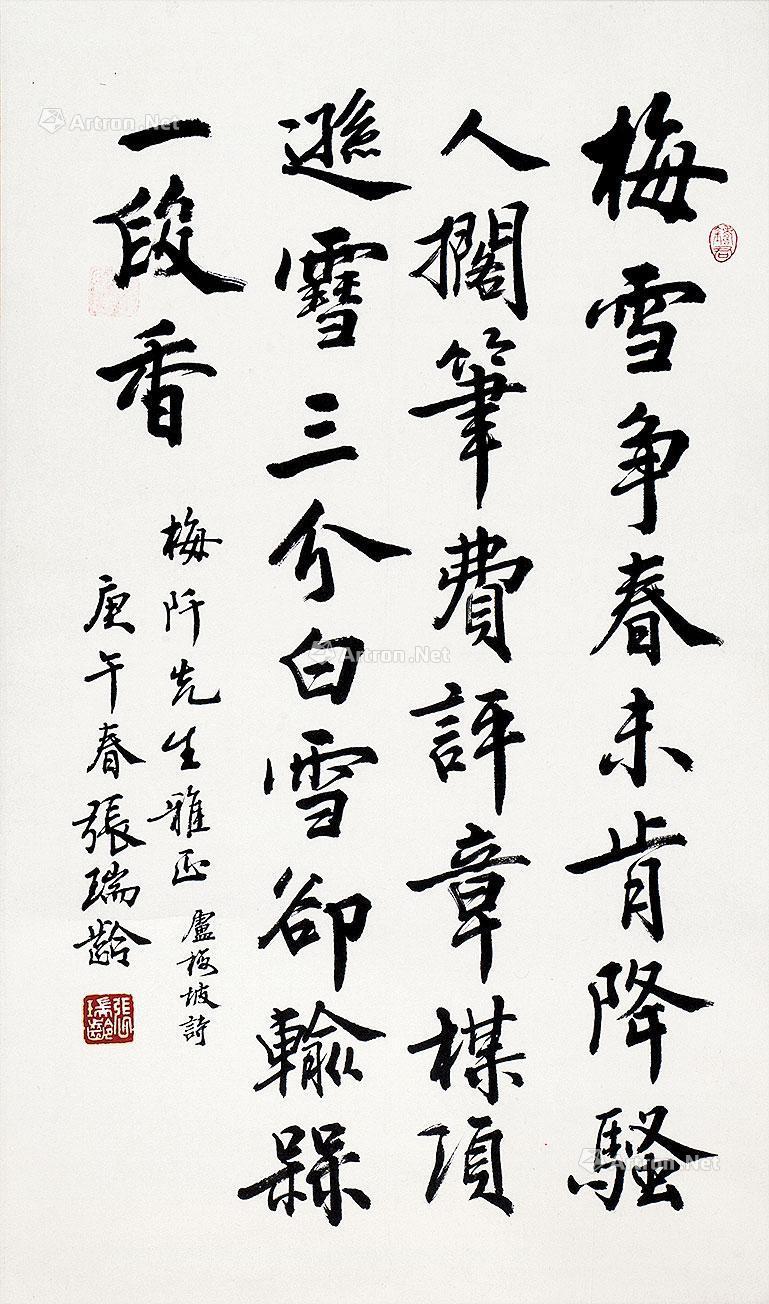 梅雪争春未肯降騷
人擱筆費評章楳須
遜雪三分白雪卻輸槑
一段香
梅阡先生雅正
盧梅坡詩
庚午春張瑞齡
張瑞齡
Artron.Net
Artron.Net
Artron.Net